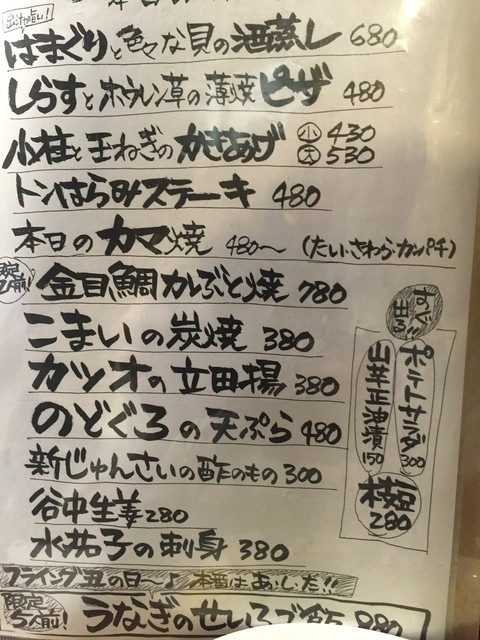 出汁が旨い!
はまぐりと色々な貝の酒蒸し 680
しらすとホウレン草の薄焼ピザ 480
小柱と玉ねぎのかきあげ 小 430
大 530
トンはらみステーキ 480
本日のカマ焼 480〜 (たい・さわら・カンパチ)
限定2人前! 金目鯛かぶと焼 780
こまいの炭焼 380
カツオの立田揚 380
のどぐろの天ぷら 480
新じゅんさいの酢のもの 300
谷中生姜 280
水茄子の刺身 380
すぐ出る!!
ポテトサラダ 300
山芋正油漬 150
枝豆 280
フライング丑の日〜♪ 本番はあさって!!
限定5人前! うなぎのせいろご飯 880